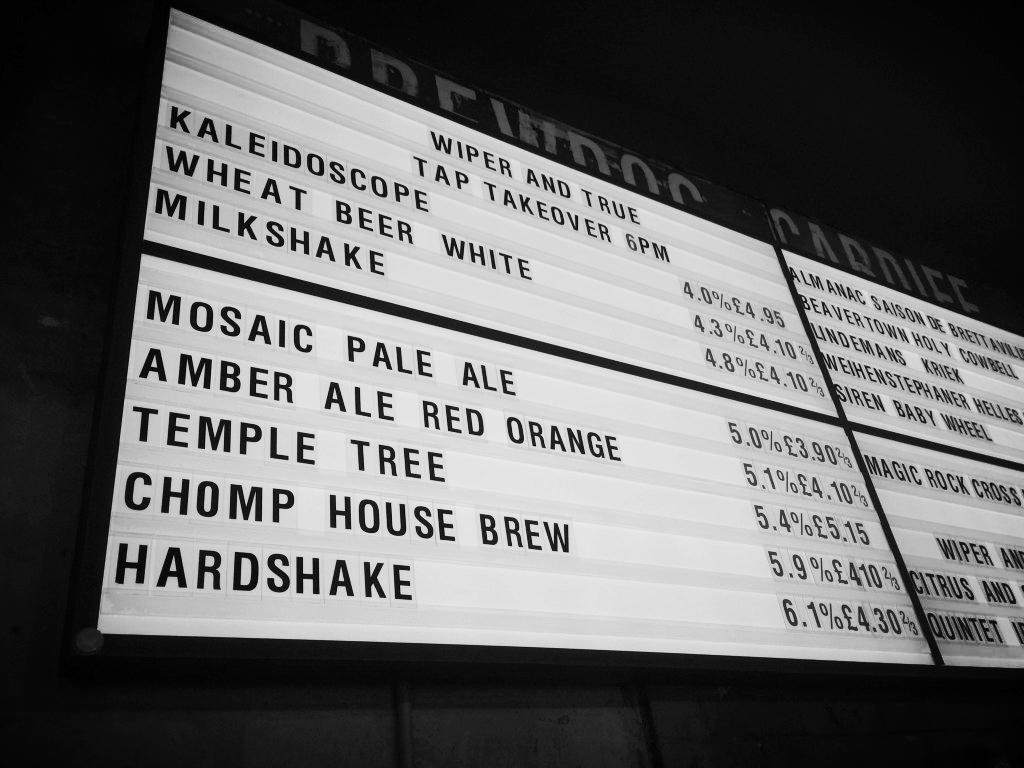 BREWDOG CARDIFF
WIPER AND TRUE
TAP TAKEOVER 6PM
KALEIDOSCOPE 4.0%£4.95
WHEAT BEER WHITE 4.3%£4.10 2/3
MILKSHAKE 4.8%£4.10 2/3
MOSAIC PALE ALE 5.0%£3.90 2/3
AMBER ALE RED ORANGE 5.1%£4.10 2/3
TEMPLE TREE 5.4%£5.15
CHOMP HOUSE BREW 5.9%£410 2/3
HARDSHAKE 6.1%£4.30 2/3
ALMANAC SAISON DE BRETTAVILLE
BEAVERTOWN HOLY COWBELL
LINDEMANS KRIEK
WEIHENSTEPHANER HELLES
SIREN BABY WHEEL
MAGIC ROCK CROSS
WIPER AND
CITRUS AND
QUINTET